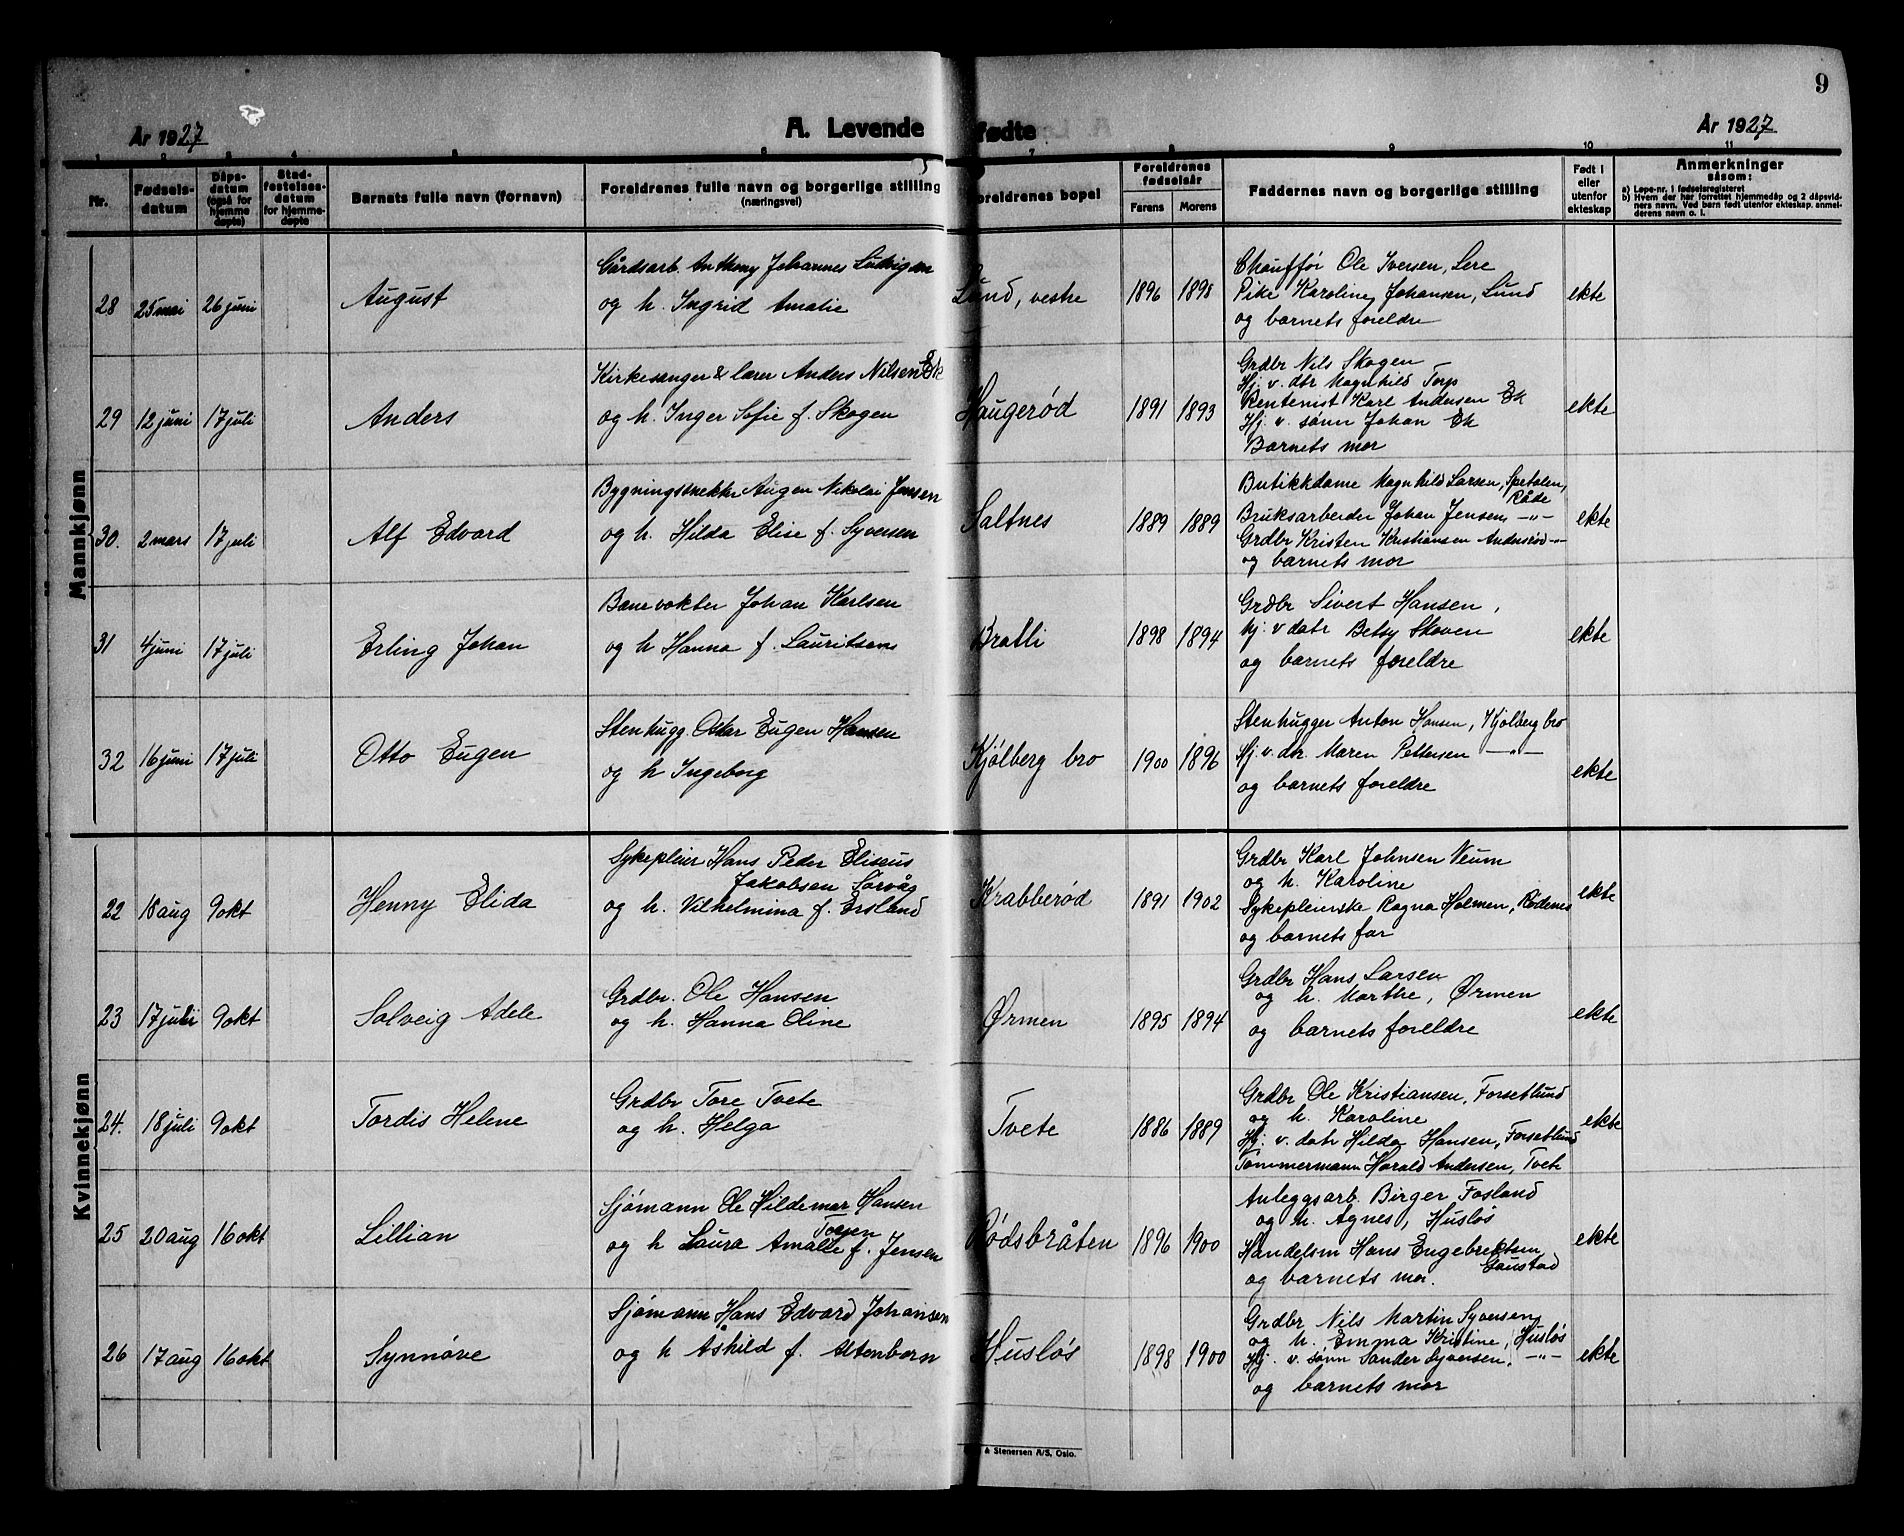 9
År 1927
A. Levende fødte
År 1927
1 2 3 4 5 6 7 8 9 10 11
Nr.
Fødsels-
datum
Dåps-
datum
(også for
hjemme-
døpte)
Stad-
festelses-
datum
for hjemme-
døpte
Barnets fulle navn (fornavn)
Foreldrenes fulle navn og borgerlige stilling
(næringsvei)
Foreldrenes bopel
Foreldrenes
fødselsår
Farens
Morens
Faddernes navn og borgerlige stilling
Født i
eller
utenfor
ekteskap
Anmerkninger
såsom:
a) Løpe-nr. i fødselsregisteret
b) Hvem der har forrettet hjemmedåp og 2 dåpsvid-
ners navn. Ved barn født utenfor ekteskap, anmel-
derens navn o. l.
Mannkjønn
28 25 mai 26 juni August
Gårdsarb. Anthony Johannes Ludvigsen
og h. Ingrid Amalie
Lund, vestre 1896 1898
Chauffør Ole Iversen, Lere
Pike Karoline Johansen, Lund
og barnets foreldre
ekte
29 12 juni 17 juli Anders
Kirkesanger & lærer Anders Nilsen Ek
og h. Inger Sofie f. Skogen
Haugerød 1891 1893
Grdbr Nils Skogen —
Hj. v. dtr Magnhild Torp
Rentenist Karl Andersen Ek
Hj. v. sønn Johan Ek
Barnets mor
ekte
30. 2 mars 17 juli Alf Edvard
Bygningssnekker Augen Nikolai Jensen
og h. Hilda Elise f. Syversen
Saltnes 1889 1889
Butikkdame Magnhild Larsen, Spetalen,
Råde
Bruksarbeider Johan Jensen —"—
Grdbr Kristen Kristiansen Anderød —"—
og barnets mor
ekte
31 4 juni 17 juli Erling Johan
Banevokter Johan Karlsen
og h Hanna f. Lauritsens
Bratli 1898 1894
Grdbr Sivert Hansen,
hj. v datr Betsy Skoven
og barnets foreldre
ekte
32 16 juni 17 juli Otto Eugen
Stenhugg. Oskar Eugen Hansen
og h Ingeborg
Kjølberg bro 1900 1896
Stenhugger Anton Hansen, Kjølberg bro
Hj. v. dtr. Maren Pettersen —"—
og barnets foreldre
ekte
Kvinnekjønn
22 18 aug 9 okt Henny Elida
Sykepleier Hans Peder Eliseus
Jakobsen Sørvåg
og h. Vilhelmina f. Ersland
Krabberød 1891 1902
Grdbr Karl Johnsen Neum
og h. Karoline
Sykepleierske Ragna Holmen, Rødenes
og barnets far
ekte
23 17 juli 9 okt Solveig Adele
Grdbr. Ole Hansen
og h. Hanna Oline
Ørmen 1895 1894
Grdbr Hans Larsen
og h. Marthe, Ørmen
og barnets foreldre
ekte
24. 18 juli 9 okt Tordis Helene
Grdbr Tore Tvete
og h. Helga
Tvete 1886 1889
Grdbr Ole Kristiansen, Forsetlund
og h. Karoline
Hj. v. datr Hilda Hansen, Forsetlund
Tømmermann Harald Andersen, Tvete
ekte
25 20 aug 16 okt Lillian
Sjømann Ole Hildemar Hansen
og h Laura Amalie f. Jensen
Rødsbråten 1896 1900
Anleggsarb. Birger Fosland
og h. Agnes, Husløs
Handelsm Hans Engebrektsen
Gaustad
og barnets mor.
ekte
26 17 aug 16 okt Synnøve
Sjømann Hans Edvard Johansen
og h Askild f. Altenborn
Husløs 1898 1900
Grdbr Nils Martin Syversen
og h. Emma Kristine, Husløs
Hj. v. sønn Sander Syversen, —"—
og barnets mor
ekte
& Stenersen A/S, Oslo.